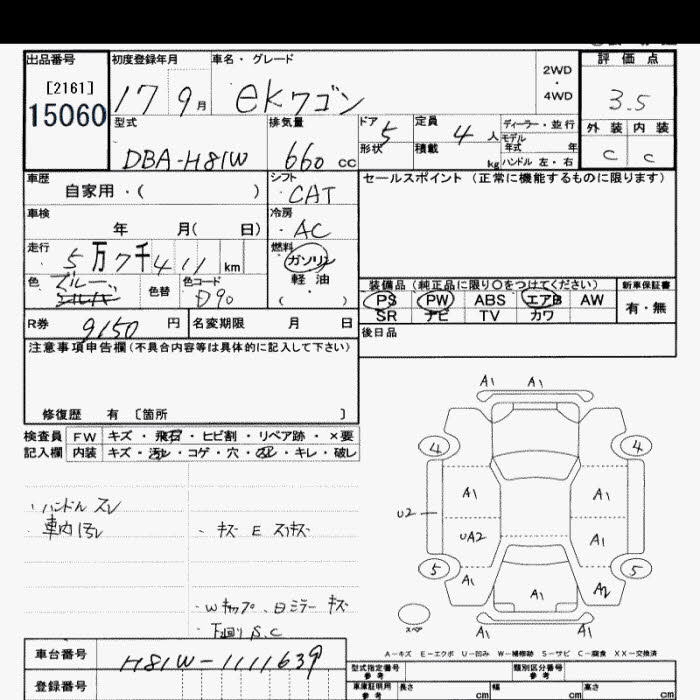 出品番号 初度登録年月 車名・グレード 評価点
[2161]
15060
17 9月 ekワゴン 2WD・4WD 3.5
型式 排気量 ドア 5 定員 4人 ディーラー・並行 外装 内装
形状 積載 kg モデル年式 年
DBA-H81W 660cc ハンドル 左・右 C C
車歴 シフト セールスポイント(正常に機能するものに限ります)
自家用・( ) CAT
車検 冷房
年 月( 日) AC
走行 燃料
5万7千411km ガソリン
色 ブルー 色替 色コード D90 軽油
( )
装備品(純正品に限り○をつけてください) 新車保証書
PS PW ABS エアB AW 有・無
SR ナビ TV カワ
R券 9150円 名変期限 月 日
後日品
注意事項申告欄(不具合内容等は具体的に記入して下さい)
修復歴 有 〔箇所 〕
検査員 FW キズ・飛石・ヒビ割・リペア跡・×要
記入欄 内装 キズ・汚れ・コゲ・穴・・キレ・破レ
A1 A1
4 4
A1 A1
U2 UA2 A1
5 5
A1 A1 A2
スペア
A1 A1
・ハンドル スレ
・車内 汚レ ・キズ E スリキズ
・Wキャップ、日ミラー キズ
・下回り S.C
A-キズ E-エクボ U-凹み W-補修跡 S-サビ C-腐食 XX-交換済
車台番号 H81W-1111639
型式指定番号 類別区分番号
登録番号
車庫証明用参考 長さ cm 幅 cm 高さ cm